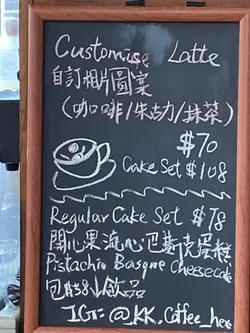 Customise Latte
自訂相片圖案
(咖啡/朱古力/抹茶)
$70
Cake Set $108
Regular Cake Set $78
開心果流心巴斯克蛋糕
Pistachio Basque Cheesecake
包$38↓飲品
IG: @_KK.Coffee_here